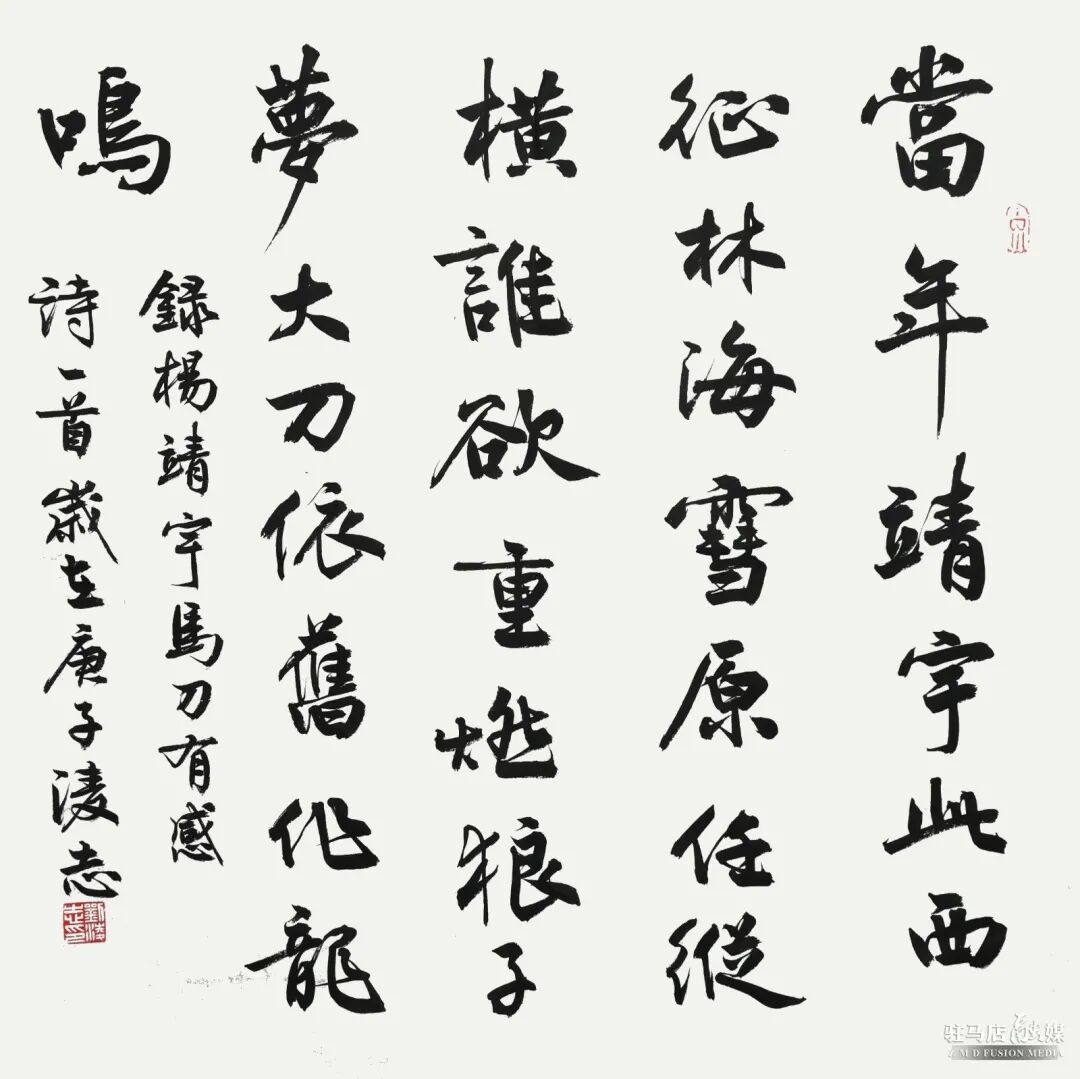 當年靖宇此西
征林海雪原任縱
橫誰欲重燃狼子
夢大刀依舊作龍
鳴
錄楊靖宇馬刀有感
詩一首歲在庚子淩志
劉淩志印
驻马店融媒
Z M D FUSION MEDIA